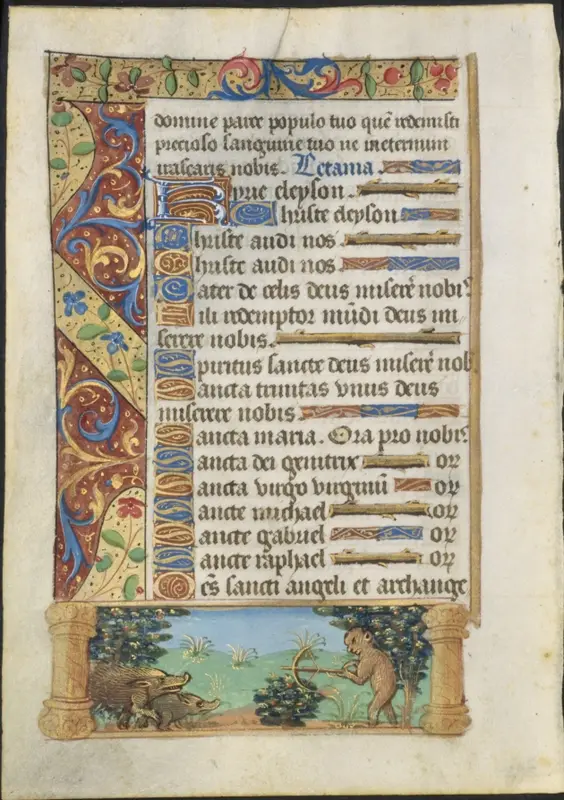 domine parce populo tuo quē redemisti
precioso sanguine tuo ne ineternum
irascaris nobis. Letania.
Kyrie eleyson.
Christe eleyson
Christe audi nos
Christe audi nos
Pater de celis deus miserē nobis
Fili redemptor mūdi deus mi
serere nobis.
Spiritus sancte deus miserē nob
Sancta trinitas vnus deus
miserere nobis.
Sancta maria. Ora pro nobis
Sancta dei genitrix or
Sancta virgo virginū or
Sancte michael or
Sancte gabriel or
Sancte raphael or
Oēs sancti angeli et archange